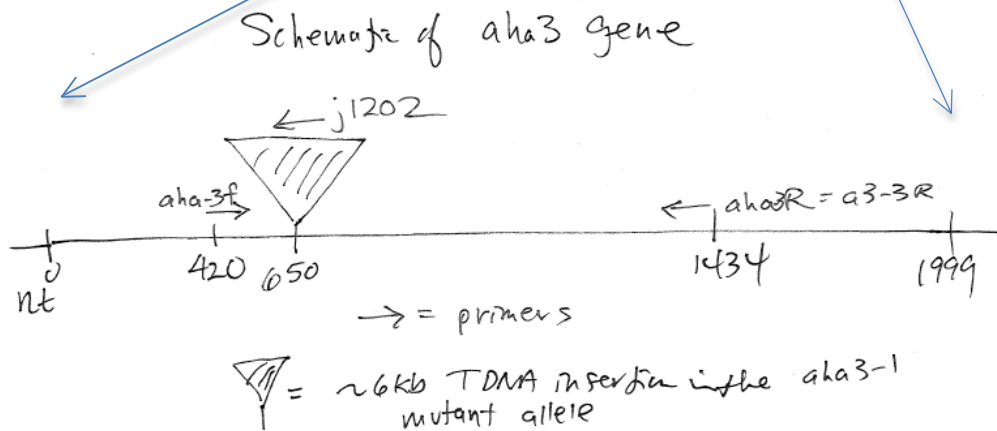 Schematic of aha3 gene
← j1202
aha-3f →
← aha3R = a3-3R
0 420 650 1434 1999
nt
→ = primers
= ~6Kb TDNA insertion in the aha3-1
mutant allele